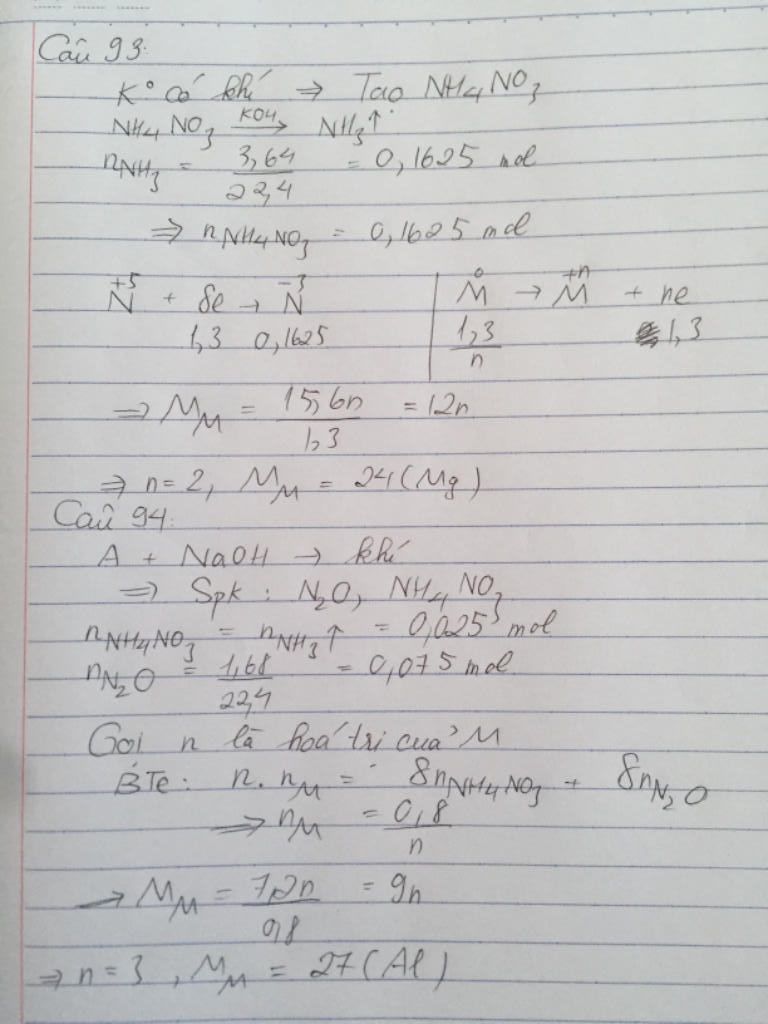 Câu 93:
K° có khí ⇒ Tạo NH4NO3
NH4NO3 KOH→ NH3↑
nNH3 = 3,64/22,4 = 0,1625 mol
⇒ nNH4NO3 = 0,1625 mol
N+5 + 8e → N-3 | M0 → M+n + ne
1,3 0,1625 | 1,3/n 1,3
⇒ MM = 15,6n/1,3 = 12n
⇒ n = 2, MM = 24 (Mg)
Câu 94:
A + NaOH → khí
⇒ Spk : N2O, NH4NO3
nNH4NO3 = nNH3↑ = 0,025 mol
nN2O = 1,68/22,4 = 0,075 mol
Gọi n là hoá trị của M
BTe: n.nM = 8nNH4NO3 + 8nN2O
⇒ nM = 0,8/n
→ MM = 7,2n/0,8 = 9n
⇒ n = 3, MM = 27 (Al)